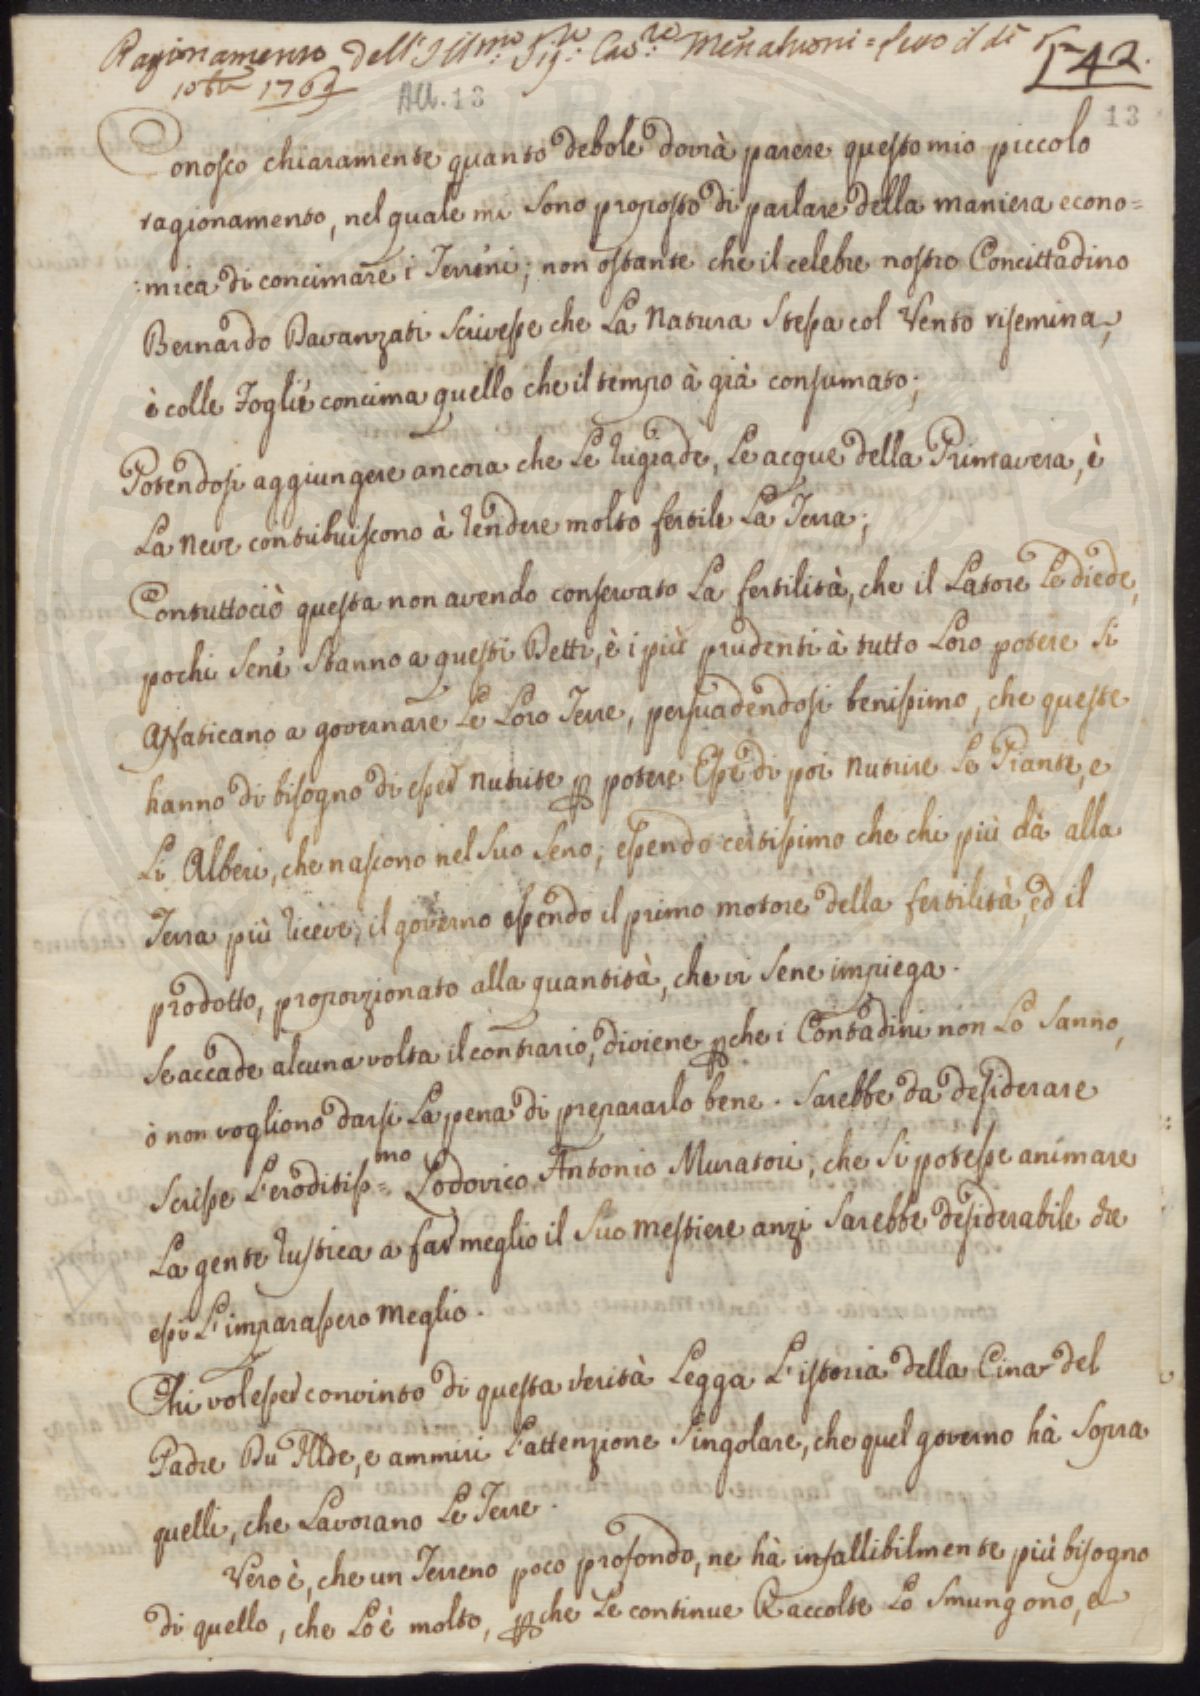 Ragionamento dell'Ill.mo Sig.re Cav.re Menabuoni = letto il dì 5
10bre 1763
142.
All. 13
13
Conosco chiaramente quanto debole dovrà parere questo mio piccolo
ragionamento, nel quale mi sono proposto di parlare della maniera econo=
=mica di concimare i Terreni; non ostante che il celebre nostro Concittadino
Bernardo Davanzati scrivesse che La Natura stessa col Vento risemina,
è colle Foglie concima quello che il tempo à già consumato;
Potendosi aggiungere ancora che Le rugiade, Le acque della Primavera, è
La Neve contribuiscono à rendere molto fertile La Terra;
Contuttociò questa non avendo conservato La fertilità, che il Fatore Le diede,
pochi sene stanno a questi Detti, è i più prudenti à tutto Loro potere si
affaticano a governare Le Loro Terre, persuadendosi benissimo, che queste
hanno di bisogno di esser nutrite p potere Esse di poi nutrire Le Piante, e
Li Alberi, che nascono nel suo seno; essendo certissimo che chi più dà alla
Terra più riceve; il governo essendo il primo motore della fertilità, ed il
prodotto, proporzionato alla quantità, che vi sene impiega.
Se accade alcuna volta il contrario, diviene pche i Contadini non Lo sanno,
ò non vogliono darsi La pena di prepararlo bene. Sarebbe da desiderare
scrisse L'eroditiss=mo Lodovico Antonio Muratori; che si potesse animare
La gente rustica a far meglio il suo mestiere anzi sarebbe desiderabile che
essi L'imparassero meglio.
Chi volesse convinto di questa verità Legga L'istoria della Cina del
Padre Du Alde, e ammiri L'attenzione singolare, che quel governo hà sopra
quelli, che Lavorano Le Terre.
Vero è, che un Terreno poco profondo, ne hà infallibilmente più bisogno
di quello, che Lo è molto, pche Le continue Raccolte Lo smungono, e